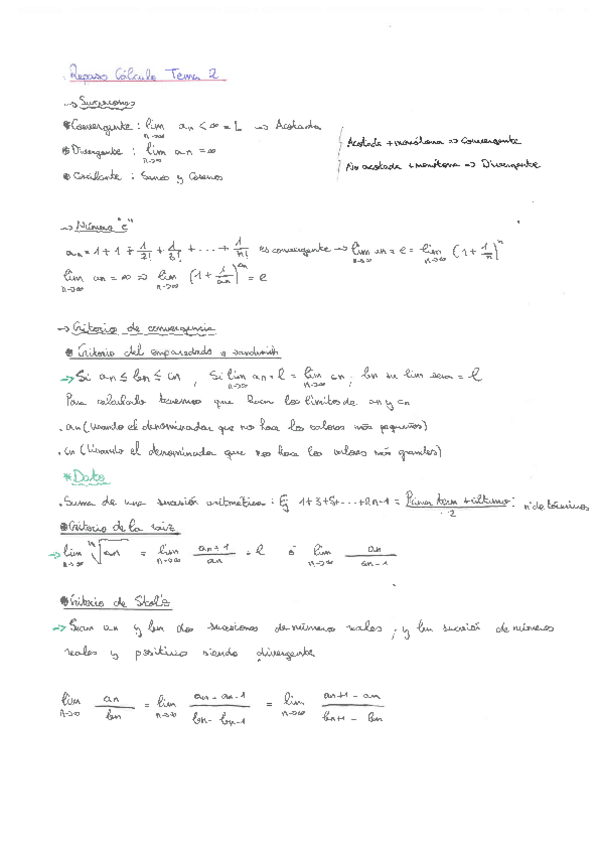 Repaso Cálculo Tema 2
→ Sucesiones
• Convergente: lim n→∞ an < ∞ = L → Acotada
• Divergente: lim n→∞ an = ∞
• Oscilante: Senos y Cosenos
Acotada + monótona ⇒ Convergente
No acotada + monótona ⇒ Divergente
→ Número "e"
an = 1 + 1 + 1/2! + 1/3! + ... + 1/n! es convergente → lim n→∞ en = e = lim n→∞ (1 + 1/n)^n
lim n→∞ an = ∞ ⇒ lim n→∞ (1 + 1/an)^an = e
→ Criterio de convergencia
• Criterio del emparedado o sandwich
→ Si an ≤ bn ≤ cn, Si lim n→∞ an = l = lim n→∞ cn; bn su lim = l
Para calcularlo tenemos que los límites de an y cn
. an (usando el denominador que nos hace los valores más pequeños)
. cn (usando el denominador que nos hace los valores más grandes)
* Dato
. Suma de una sucesión aritmética: Ej 1+3+5+...+2n-1 = Primer term + último / 2 · nº de términos
• Criterio de la raíz
→ lim n→∞ ⁿ√an = lim n→∞ an+1 / an = l ó lim n→∞ an / an-1
• Criterio de Stolz
→ Sean an y bn dos sucesiones de números reales, y bn sucesión de números
reales y positivos siendo divergente
lim n→∞ an / bn = lim n→∞ an - an-1 / bn - bn-1 = lim n→∞ an+1 - an / bn+1 - bn